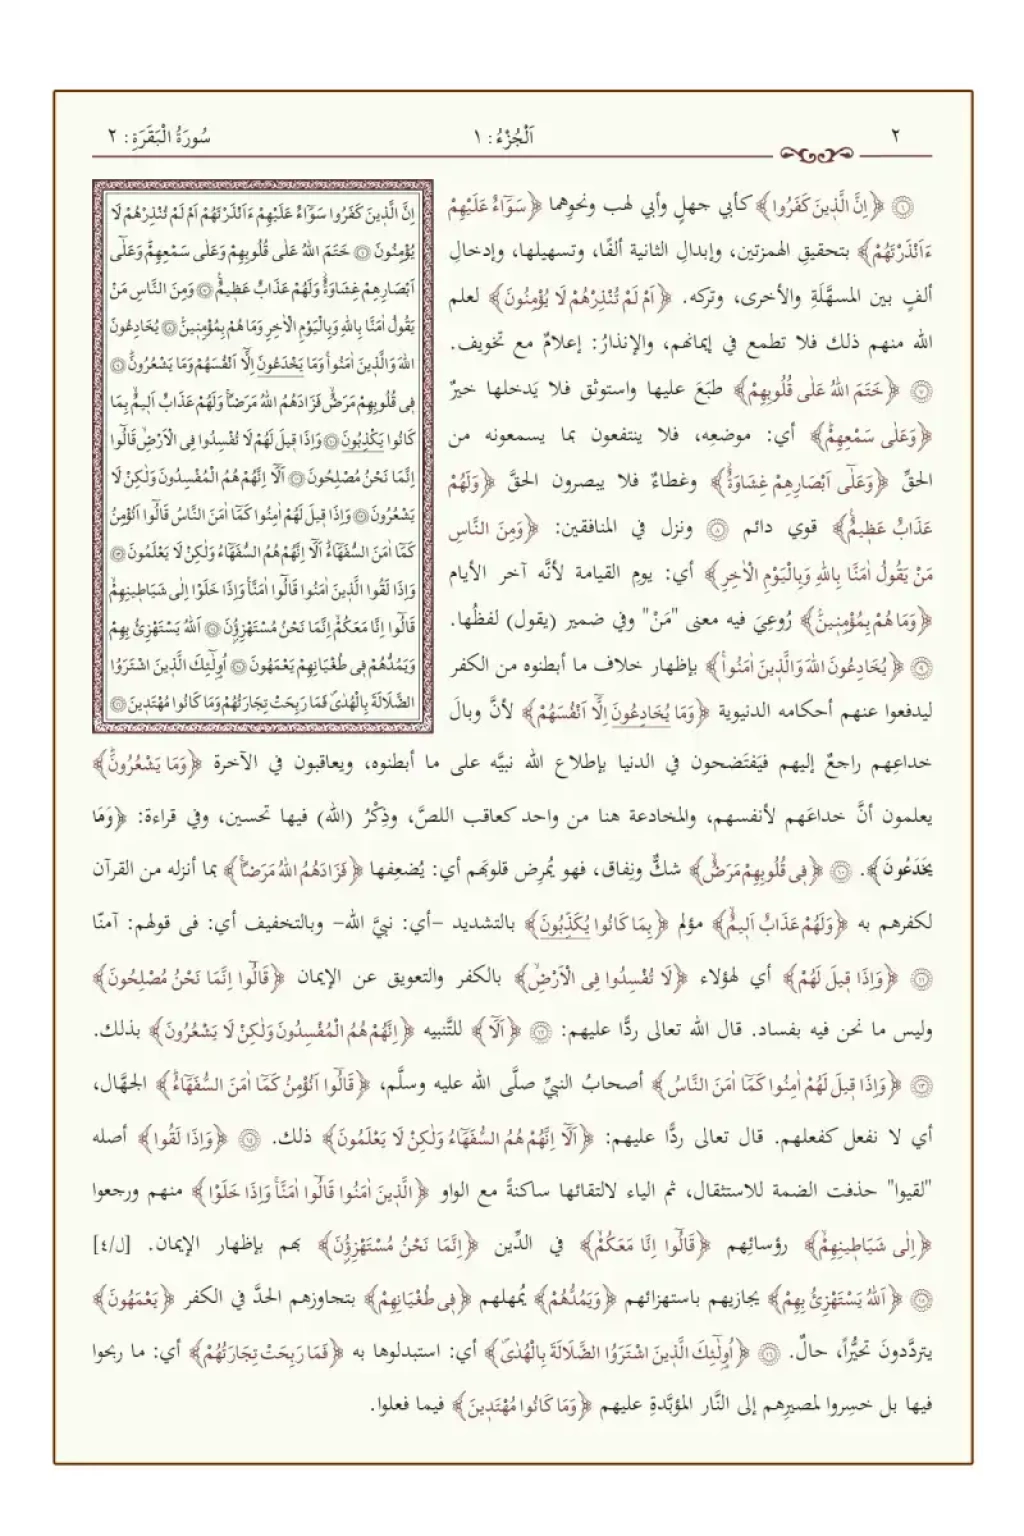 ٢
اَلْجُزْءُ: ١
سُورَةُ الْبَقَرَةِ: ٢
اِنَّ الَّذِينَ كَفَرُوا سَوَٓاءٌ عَلَيْهِمْ ءَاَنْذَرْتَهُمْ اَمْ لَمْ تُنْذِرْهُمْ لَا
يُؤْمِنُونَ ۝٦ خَتَمَ اللّٰهُ عَلٰى قُلُوبِهِمْ وَعَلٰى سَمْعِهِمْۜ وَعَلٰٓى
اَبْصَارِهِمْ غِشَاوَةٌۘ وَلَهُمْ عَذَابٌ عَظِيمٌ۟ ۝٧ وَمِنَ النَّاسِ مَنْ
يَقُولُ اٰمَنَّا بِاللّٰهِ وَبِالْيَوْمِ الْاٰخِرِ وَمَا هُمْ بِمُؤْمِنِينَۢ ۝٨ يُخَادِعُونَ
اللّٰهَ وَالَّذِينَ اٰمَنُواۚ وَمَا يَخْدَعُونَ اِلَّٓا اَنْفُسَهُمْ وَمَا يَشْعُرُونَۜ ۝٩
فِي قُلُوبِهِمْ مَرَضٌۙ فَزَادَهُمُ اللّٰهُ مَرَضًاۚ وَلَهُمْ عَذَابٌ اَلِيمٌۙ بِمَا
كَانُوا يَكْذِبُونَ ۝١٠ وَاِذَا قِيلَ لَهُمْ لَا تُفْسِدُوا فِي الْاَرْضِۙ قَالُٓوا
اِنَّمَا نَحْنُ مُصْلِحُونَ ۝١١ اَلَٓا اِنَّهُمْ هُمُ الْمُفْسِدُونَ وَلٰكِنْ لَا
يَشْعُرُونَ ۝١٢ وَاِذَا قِيلَ لَهُمْ اٰمِنُوا كَمَٓا اٰمَنَ النَّاسُ قَالُٓوا اَنُؤْمِنُ
كَمَٓا اٰمَنَ السُّفَهَٓاءُۜ اَلَٓا اِنَّهُمْ هُمُ السُّفَهَٓاءُ وَلٰكِنْ لَا يَعْلَمُونَ ۝١٣
وَاِذَا لَقُوا الَّذِينَ اٰمَنُوا قَالُٓوا اٰمَنَّاۚ وَاِذَا خَلَوْا اِلٰى شَيَاطِينِهِمْۙ
قَالُٓوا اِنَّا مَعَكُمْۙ اِنَّمَا نَحْنُ مُسْتَهْزِؤُ۫نَ ۝١٤ اَللّٰهُ يَسْتَهْزِئُ بِهِمْ
وَيَمُدُّهُمْ فِي طُغْيَانِهِمْ يَعْمَهُونَ ۝١٥ اُو۬لٰٓئِكَ الَّذِينَ اشْتَرَوُا
الضَّلَالَةَ بِالْهُدٰىۖ فَمَا رَبِحَتْ تِجَارَتُهُمْ وَمَا كَانُوا مُهْتَدِينَ ۝١٦
۝٦ ﴿اِنَّ الَّذِينَ كَفَرُوا﴾ كأبي جهلٍ وأبي لهب ونحوِهما ﴿سَوَٓاءٌ عَلَيْهِمْ
ءَاَنْذَرْتَهُمْ﴾ بتحقيقِ الهمزتين، وإبدالِ الثانية ألفًا، وتسهيلها، وإدخالِ
ألفٍ بين المسهَّلَةِ والأخرى، وتركه. ﴿اَمْ لَمْ تُنْذِرْهُمْ لَا يُؤْمِنُونَ﴾ لعلم
الله منهم ذلك فلا تطمع في إيمانهم، والإنذارُ: إعلامٌ مع تخويف.
۝٧ ﴿خَتَمَ اللّٰهُ عَلٰى قُلُوبِهِمْ﴾ طبَعَ عليها واستوثق فلا يَدخلها خيرٌ
﴿وَعَلٰى سَمْعِهِمْۜ﴾ أي: موضعِه، فلا ينتفعون بما يسمعونه من
الحقِّ ﴿وَعَلٰٓى اَبْصَارِهِمْ غِشَاوَةٌۘ﴾ وغطاءٌ فلا يبصرون الحقَّ ﴿وَلَهُمْ
عَذَابٌ عَظِيمٌ۟﴾ قوي دائم ۝٨ ونزل في المنافقين: ﴿وَمِنَ النَّاسِ
مَنْ يَقُولُ اٰمَنَّا بِاللّٰهِ وَبِالْيَوْمِ الْاٰخِرِ﴾ أي: يوم القيامة لأنَّه آخر الأيام
﴿وَمَا هُمْ بِمُؤْمِنِينَۢ﴾ رُوعِيَ فيه معنى "مَنْ" وفي ضمير (يقول) لفظُها.
۝٩ ﴿يُخَادِعُونَ اللّٰهَ وَالَّذِينَ اٰمَنُواۚ﴾ بإظهار خلاف ما أبطنوه من الكفر
ليدفعوا عنهم أحكامه الدنيوية ﴿وَمَا يُخَادِعُونَ اِلَّٓا اَنْفُسَهُمْ﴾ لأنَّ وبالَ
خداعِهم راجعٌ إليهم فيَفتَضحون في الدنيا بإطلاع الله نبيَّه على ما أبطنوه، ويعاقبون في الآخرة ﴿وَمَا يَشْعُرُونَۜ﴾
يعلمون أنَّ خداعَهم لأنفسهم، والمخادعة هنا من واحد كعاقب اللصَّ، وذِكْرُ (الله) فيها تحسين، وفي قراءة: ﴿وَمَا
يَخْدَعُونَ﴾. ۝١٠ ﴿فِي قُلُوبِهِمْ مَرَضٌۙ﴾ شكٌّ ونِفاق، فهو يُمرِض قلوبَهم أي: يُضعِفها ﴿فَزَادَهُمُ اللّٰهُ مَرَضًاۚ﴾ بما أنزله من القرآن
لكفرهم به ﴿وَلَهُمْ عَذَابٌ اَلِيمٌۙ﴾ مؤلم ﴿بِمَا كَانُوا يُكَذِّبُونَ﴾ بالتشديد -أي: نبيَّ الله- وبالتخفيف أي: فى قولهم: آمنّا
۝١١ ﴿وَاِذَا قِيلَ لَهُمْ﴾ أي لهؤلاء ﴿لَا تُفْسِدُوا فِي الْاَرْضِۙ﴾ بالكفر والتعويق عن الإيمان ﴿قَالُٓوا اِنَّمَا نَحْنُ مُصْلِحُونَ﴾
وليس ما نحن فيه بفساد. قال الله تعالى ردًّا عليهم: ۝١٢ ﴿اَلَٓا﴾ للتَّنبيه ﴿اِنَّهُمْ هُمُ الْمُفْسِدُونَ وَلٰكِنْ لَا يَشْعُرُونَ﴾ بذلك.
۝١٣ ﴿وَاِذَا قِيلَ لَهُمْ اٰمِنُوا كَمَٓا اٰمَنَ النَّاسُ﴾ أصحابُ النبيِّ صلَّى الله عليه وسلَّم، ﴿قَالُٓوا اَنُؤْمِنُ كَمَٓا اٰمَنَ السُّفَهَٓاءُۜ﴾ الجهَّال،
أي لا نفعل كفعلهم. قال تعالى ردًّا عليهم: ﴿اَلَٓا اِنَّهُمْ هُمُ السُّفَهَٓاءُ وَلٰكِنْ لَا يَعْلَمُونَ﴾ ذلك. ۝١٤ ﴿وَاِذَا لَقُوا﴾ أصله
"لقيوا" حذفت الضمة للاستثقال، ثم الياء لالتقائها ساكنةً مع الواو ﴿الَّذِينَ اٰمَنُوا قَالُٓوا اٰمَنَّاۚ وَاِذَا خَلَوْا﴾ منهم ورجعوا
﴿اِلٰى شَيَاطِينِهِمْۙ﴾ رؤسائِهم ﴿قَالُٓوا اِنَّا مَعَكُمْۙ﴾ في الدِّين ﴿اِنَّمَا نَحْنُ مُسْتَهْزِؤُ۫نَ﴾ بهم بإظهار الإيمان. [ل/٤]
۝١٥ ﴿اَللّٰهُ يَسْتَهْزِئُ بِهِمْ﴾ يجازيهم باستهزائهم ﴿وَيَمُدُّهُمْ﴾ يُمهلهم ﴿فِي طُغْيَانِهِمْ﴾ بتجاوزهم الحدَّ في الكفر ﴿يَعْمَهُونَ﴾
يتردَّدونَ تحيُّراً، حالٌ. ۝١٦ ﴿اُو۬لٰٓئِكَ الَّذِينَ اشْتَرَوُا الضَّلَالَةَ بِالْهُدٰىۖ﴾ أي: استبدلوها به ﴿فَمَا رَبِحَتْ تِجَارَتُهُمْ﴾ أي: ما ربحوا
فيها بل خسِروا لمصيرِهم إلى النَّار المؤبَّدةِ عليهم ﴿وَمَا كَانُوا مُهْتَدِينَ﴾ فيما فعلوا.